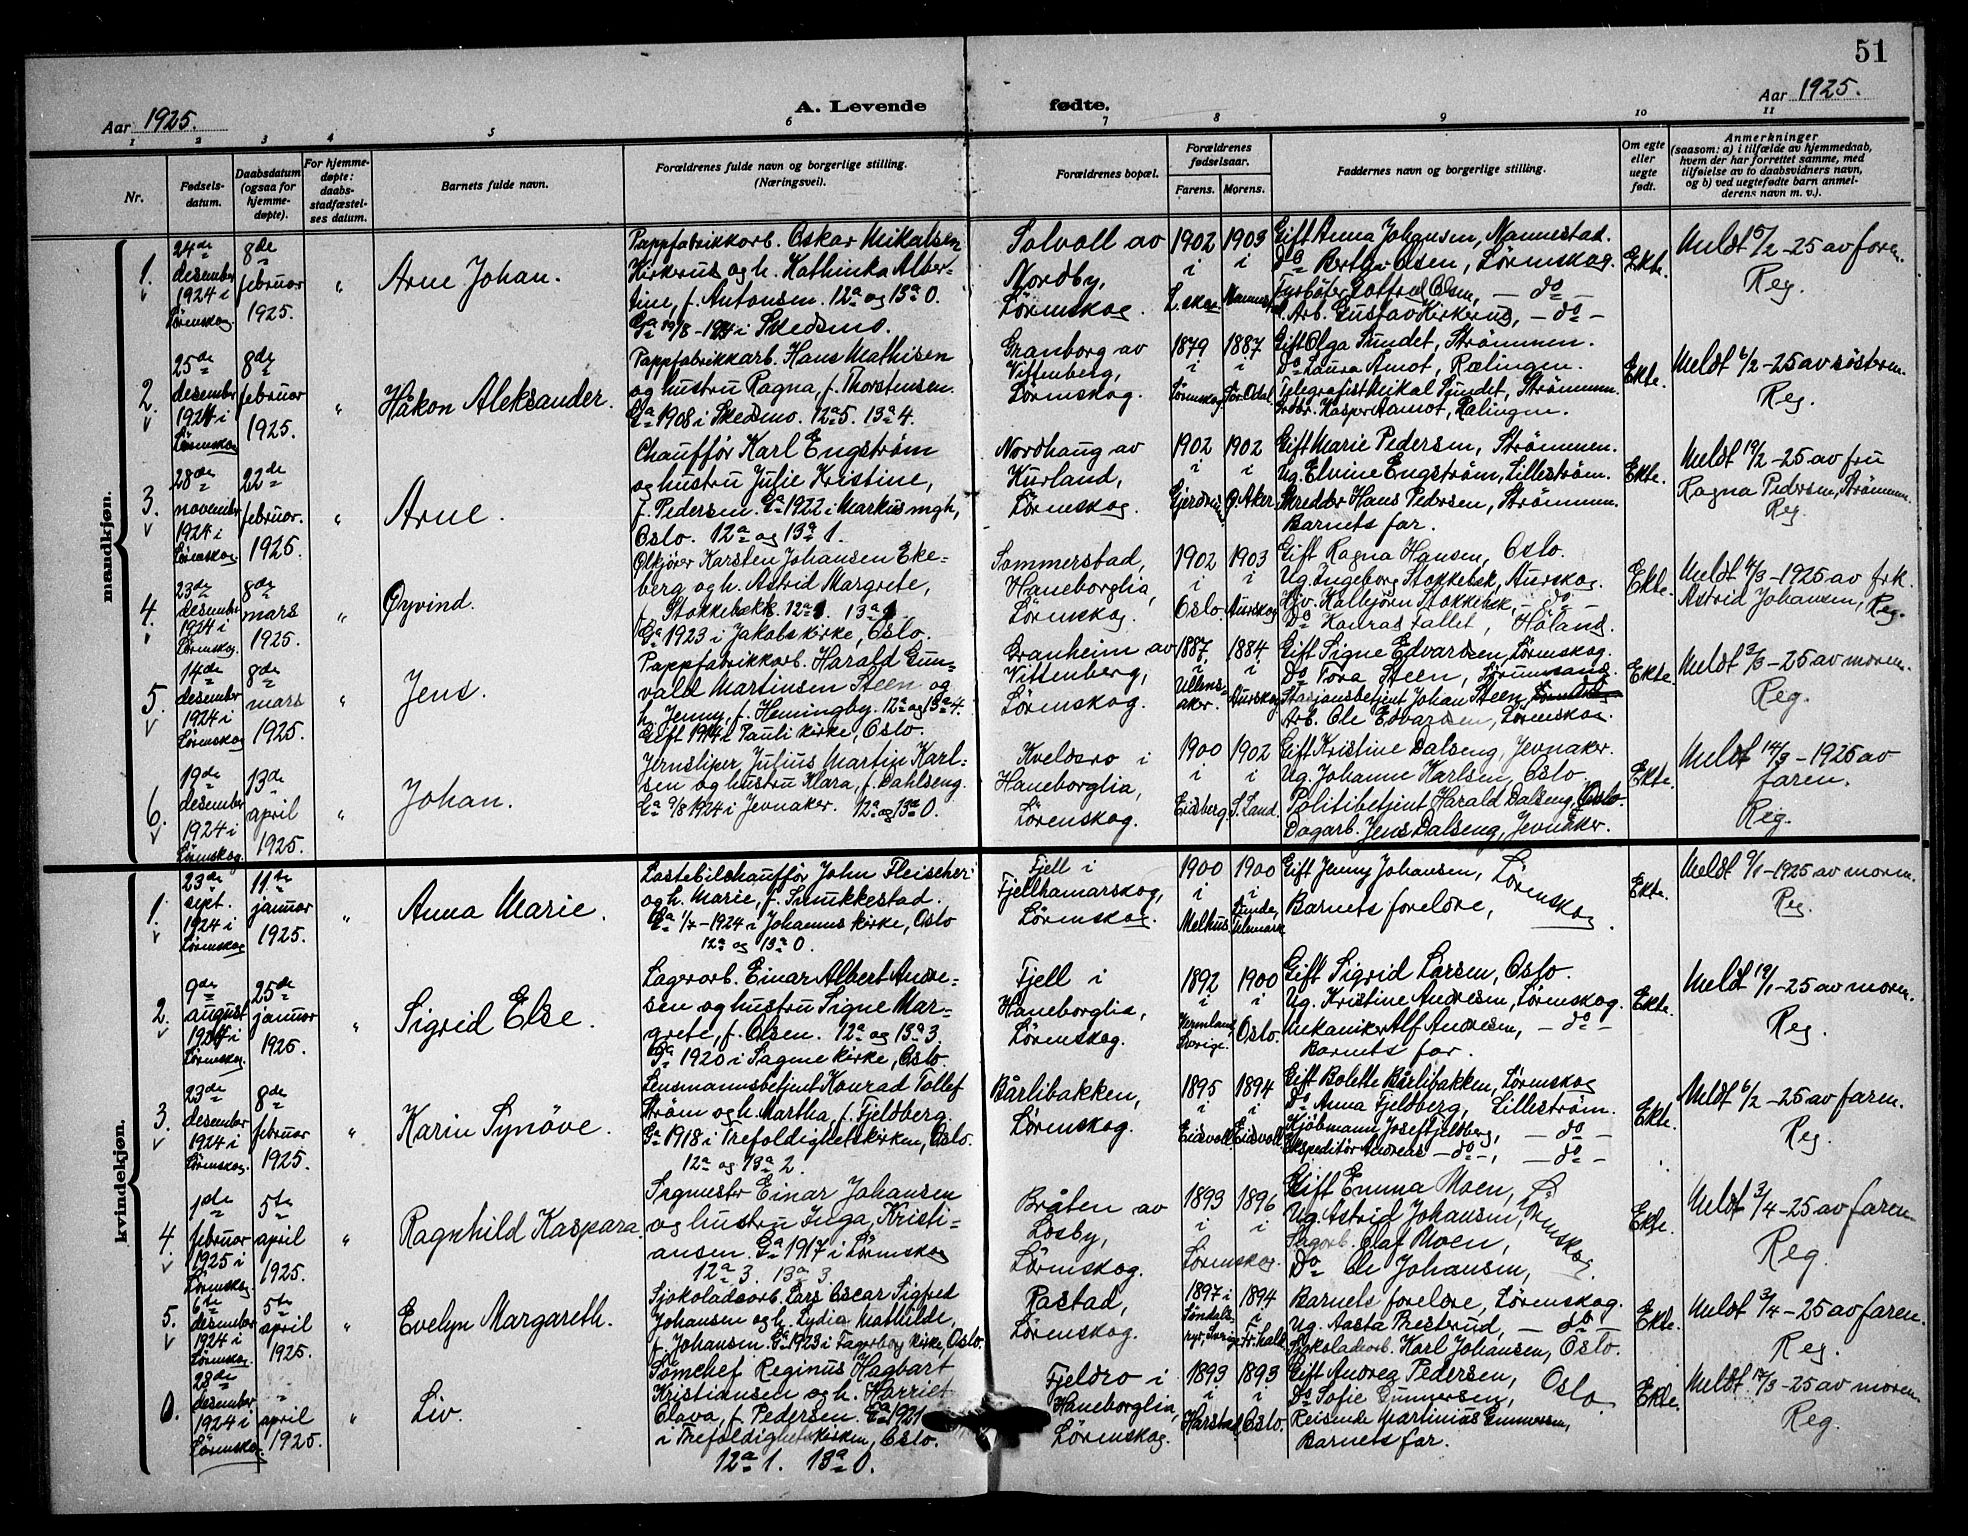 51
Aar 1925.
A. Levende fødte.
Aar 1925.
1 2 3 4 5 6 7 8 9 10 11
Nr.
Fødsels-
datum.
Daabsdatum
(ogsaa for
hjemme-
døpte).
For hjemme-
døpte:
daabs-
stadfæstel-
ses datum.
Barnets fulde navn.
Forældrenes fulde navn og borgerlige stilling.
(Næringsvei).
Forældrenes bopæl.
Forældrenes
fødselsaar.
Farens. Morens.
Faddernes navn og borgerlige stilling.
Om egte
eller
uegte
født.
Anmerkninger
(saasom: a) i tilfælde av hjemmedaab,
hvem der har forrettet samme, med
tilføielse av to daabsvidners navn,
og b) ved uegtefødte barn anmel-
derens navn m. v.).
mandkjøn.
1.
24de
desember
1924 i
Lørenskog.
8de
februar
1925.
"
Arne Johan.
Pappfabrikkarb. Oskar Mikalsen
Kirkerus og h. Kathinka Alber-
tine, f. Antonsen. 12a og 13a 0.
Ga 19/8-1924 i Skedsmo.
Solvoll av
Nordby,
Lørenskog.
1902
i
1903
i
Gift Anna Johansen, Nannestad.
Do Berthe Olsen, Lørenskog.
Gottfred Olsen, — do —
Arb. Gustav Kirkerus, — do —
Ekte.
Meldt 5/2-25 av faren.
Reg.
2.
25de
desember
1924 i
Lørenskog
8de
februar
1925.
"
Håkon Aleksander.
Pappfabrikkarb. Hans Mathisen
og hustru Ragna, f. Thorstensen.
Ga 1908 i Skedsmo. 12a 5. 13a 4.
Granborg av
Vittenberg,
Lørenskog.
1879
i
Lørenskog
1887
i
Sør Odal.
Gift Olga Sundet, Strømmen.
Do Laura Aamot, Rælingen.
Telegrafist Mikal Sundet, Strømmen.
Grdbr. Kasper Aamot, Rælingen.
Ekte.
Meldt 6/2-25 av søsteren.
Reg.
3.
28de
november
1924 i
Lørenskog
22de
februar.
1925.
"
Arne.
Chauffør Karl Engstrøm
og hustru Julie Kristine,
f. Pedersen. Ga 1922 i Markus mgh,
Oslo. 12a og 13a 1.
Nordhaug av
Kurland,
Lørenskog.
1902
i
Gjerdrum
1902
i
Ø. Aker.
Gift Marie Pedersen, Strømmen.
Ug. Elvine Engstrøm, Lillestrøm.
Skredder Hans Pedersen, Strømmen.
Barnets far.
Ekte.
Meldt 19/2-25 av fru
Ragna Pedersen, Strømmen.
Reg.
4.
23de
desember
1924 i
Lørenskog.
8de
mars
1925.
"
Øyvind.
Ølkjører Karsten Johansen Eke-
berg og h. Astrid Margrete,
f. Stokkebækk. 12a 13a
Ga 1923 i Jakobs kirke, Oslo.
Sommerstad,
Haneborglia,
Lørenskog.
1902
i
Oslo.
1903
i
Aurskog
Gift Ragna Hansen, Oslo.
Ug. Ingeborg Stokkebek, Aurskog.
Hallbjørn Stokkebek, — do —
Do Konrad Fallet, Høland.
Ekte.
Meldt 4/3-1925 av frk.
Astrid Johansen, Reg.
5.
14de
desember
1924 i
Lørenskog
8de
mars
1925.
"
Jens.
Pappfabrikkarb. Harald Gun-
vald Martinsen Steen og
h. Jenny, f. Hemingby. 12a og 13a 4.
Gift 1914 i Pauli kirke, Oslo.
Granheim av
Vittenberg,
Lørenskog.
1887
i
Ullens-
aker.
1884
i
Aurskog
Gift Signe Edvardsen, Lørenskog.
Do Tora Steen, Sørumsand.
Stasjonsbetjent Johan Steen,
Arb. Ole Edvardsen, Lørenskog.
Ekte.
Meldt 3/3-25 av moren.
Reg.
6.
19de
desember
1924 i
Lørenskog.
13de
april
1925.
"
Johan.
Jernsliper Julius Martin Karl-
sen og hustru Klara, f. Dahlseng.
Ga 9/8 1924 i Jevnaker. 12a og 13a 0.
Kveldsro i
Haneborglia,
Lørenskog.
1900
i
Eidsberg
1902
i
S. Land.
Gift Kristine Dalseng, Jevnaker.
Ug. Johanne Karlsen, Oslo.
Politibetjent Harald Dalseng, Oslo.
Dagarb. Jens Dalseng, Jevnaker.
Ekte.
Meldt 14/3-1925 av
faren.
Reg.
kvindekjøn.
1.
23de
sept.
1924 i
Lørenskog
11te
januar
1925.
"
Anna Marie.
Lastebilchauffør John Fleischer
og h. Marie, f. Smukkestad.
Ga 1/7-1924 i Johannes kirke, Oslo
12a og 13a 0.
Fjell i
Fjellhamarskog,
Lørenskog.
1900
i
Melhus
1900
i
Lunde,
Telemark
Gift Jenny Johansen,
Barnets foreldre,
Lørenskog.
Ekte.
Meldt 9/1-1925 av moren.
Reg.
2.
9de
august
1924 i
Lørenskog.
25de
januar
1925.
"
Sigrid Else.
Lagerarb. Einar Albert Andre-
sen og hustru Signe Mar-
grete, f. Olsen. 12a og 13a 3.
Ga 1920 i Sagene kirke, Oslo.
Fjell i
Haneborglia,
Lørenskog.
1892
i
Vermland,
Sverige.
1900
i
Oslo.
Gift Sigrid Larsen, Oslo.
Ug. Kristine Andresen, Lørenskog.
Mekaniker Alf Andresen, — do —
Barnets far.
Ekte.
Meldt 19/1-25 av moren.
Reg.
3.
23de
desember
1924 i
Lørenskog.
8de
februar
1925.
"
Karin Synøve.
Lensmannsbetjent Konrad Tollef
Strøm og h. Martha, f. Fjeldberg.
Ga 1918 i Trefoldighetskirken, Oslo.
12a og 13a 2.
Bårlibakken,
Lørenskog.
1895
i
Eidsvoll
1894
i
Eidsvoll
Gift Bolette Bårlibakken, Lørenskog
Do Anna Fjeldberg, Lillestrøm.
Kjøbmann Josef Fjeldberg, — do —
Ekspeditør Andreas — do —, — do —
Ekte.
Meldt 6/2-25 av faren.
Reg.
4.
1de
februar
1925 i
Lørenskog.
5te
april
1925.
"
Ragnhild Kaspara.
Sagmester Einar Johansen
og hustru Inga, Kristi-
ansen. Ga 1917 i Lørenskog
12a 3. 13a 3.
Bråten av
Losby,
Lørenskog.
1893
i
1896
i
Lørenskog.
Gift Emma Moen,
Ug. Astrid Johansen,
Sagarb. Olaf Moen,
Do Ole Johansen,
Lørenskog.
Ekte.
Meldt 3/4-25 av faren.
Reg.
5.
6te
desember
1924 i
Lørenskog.
5te
april
1925.
"
Evelyn Margareth.
Sjokoladearb. Lars Oscar Sigfred
Johansen og h. Lydia Mathilde,
f. Johansen. Ga 1923 i Fagerborg kirke, Oslo.
Rastad,
Lørenskog.
1897 i
1894
i
Fr.hald.
Barnets foreldre, Lørenskog.
Ug. Aasta Presterud, — do —
Sjokoladearb. Karl Johansen, Oslo.
Ekte.
Meldt 3/4-25 av faren.
Reg.
6.
28de
desember
1924 i
Lørenskog
"
april
1925.
"
Liv.
Sømchef Reginus Hagbart
Kristiansen og h. Harriet
Olava, f. Pedersen. Ga 1921
i Trefoldighetskirken, Oslo.
12a 1. 13a 0.
Fjeldro i
Haneborglia,
Lørenskog.
1893
i
Harstad
1893
i
Oslo.
Gift Andrea Pedersen,
Do Sofie Gunnersen,
Reisende Martinius Gunnersen,
Barnets far.
Oslo.
Ekte.
Meldt 17/3-25 av moren.
Reg.